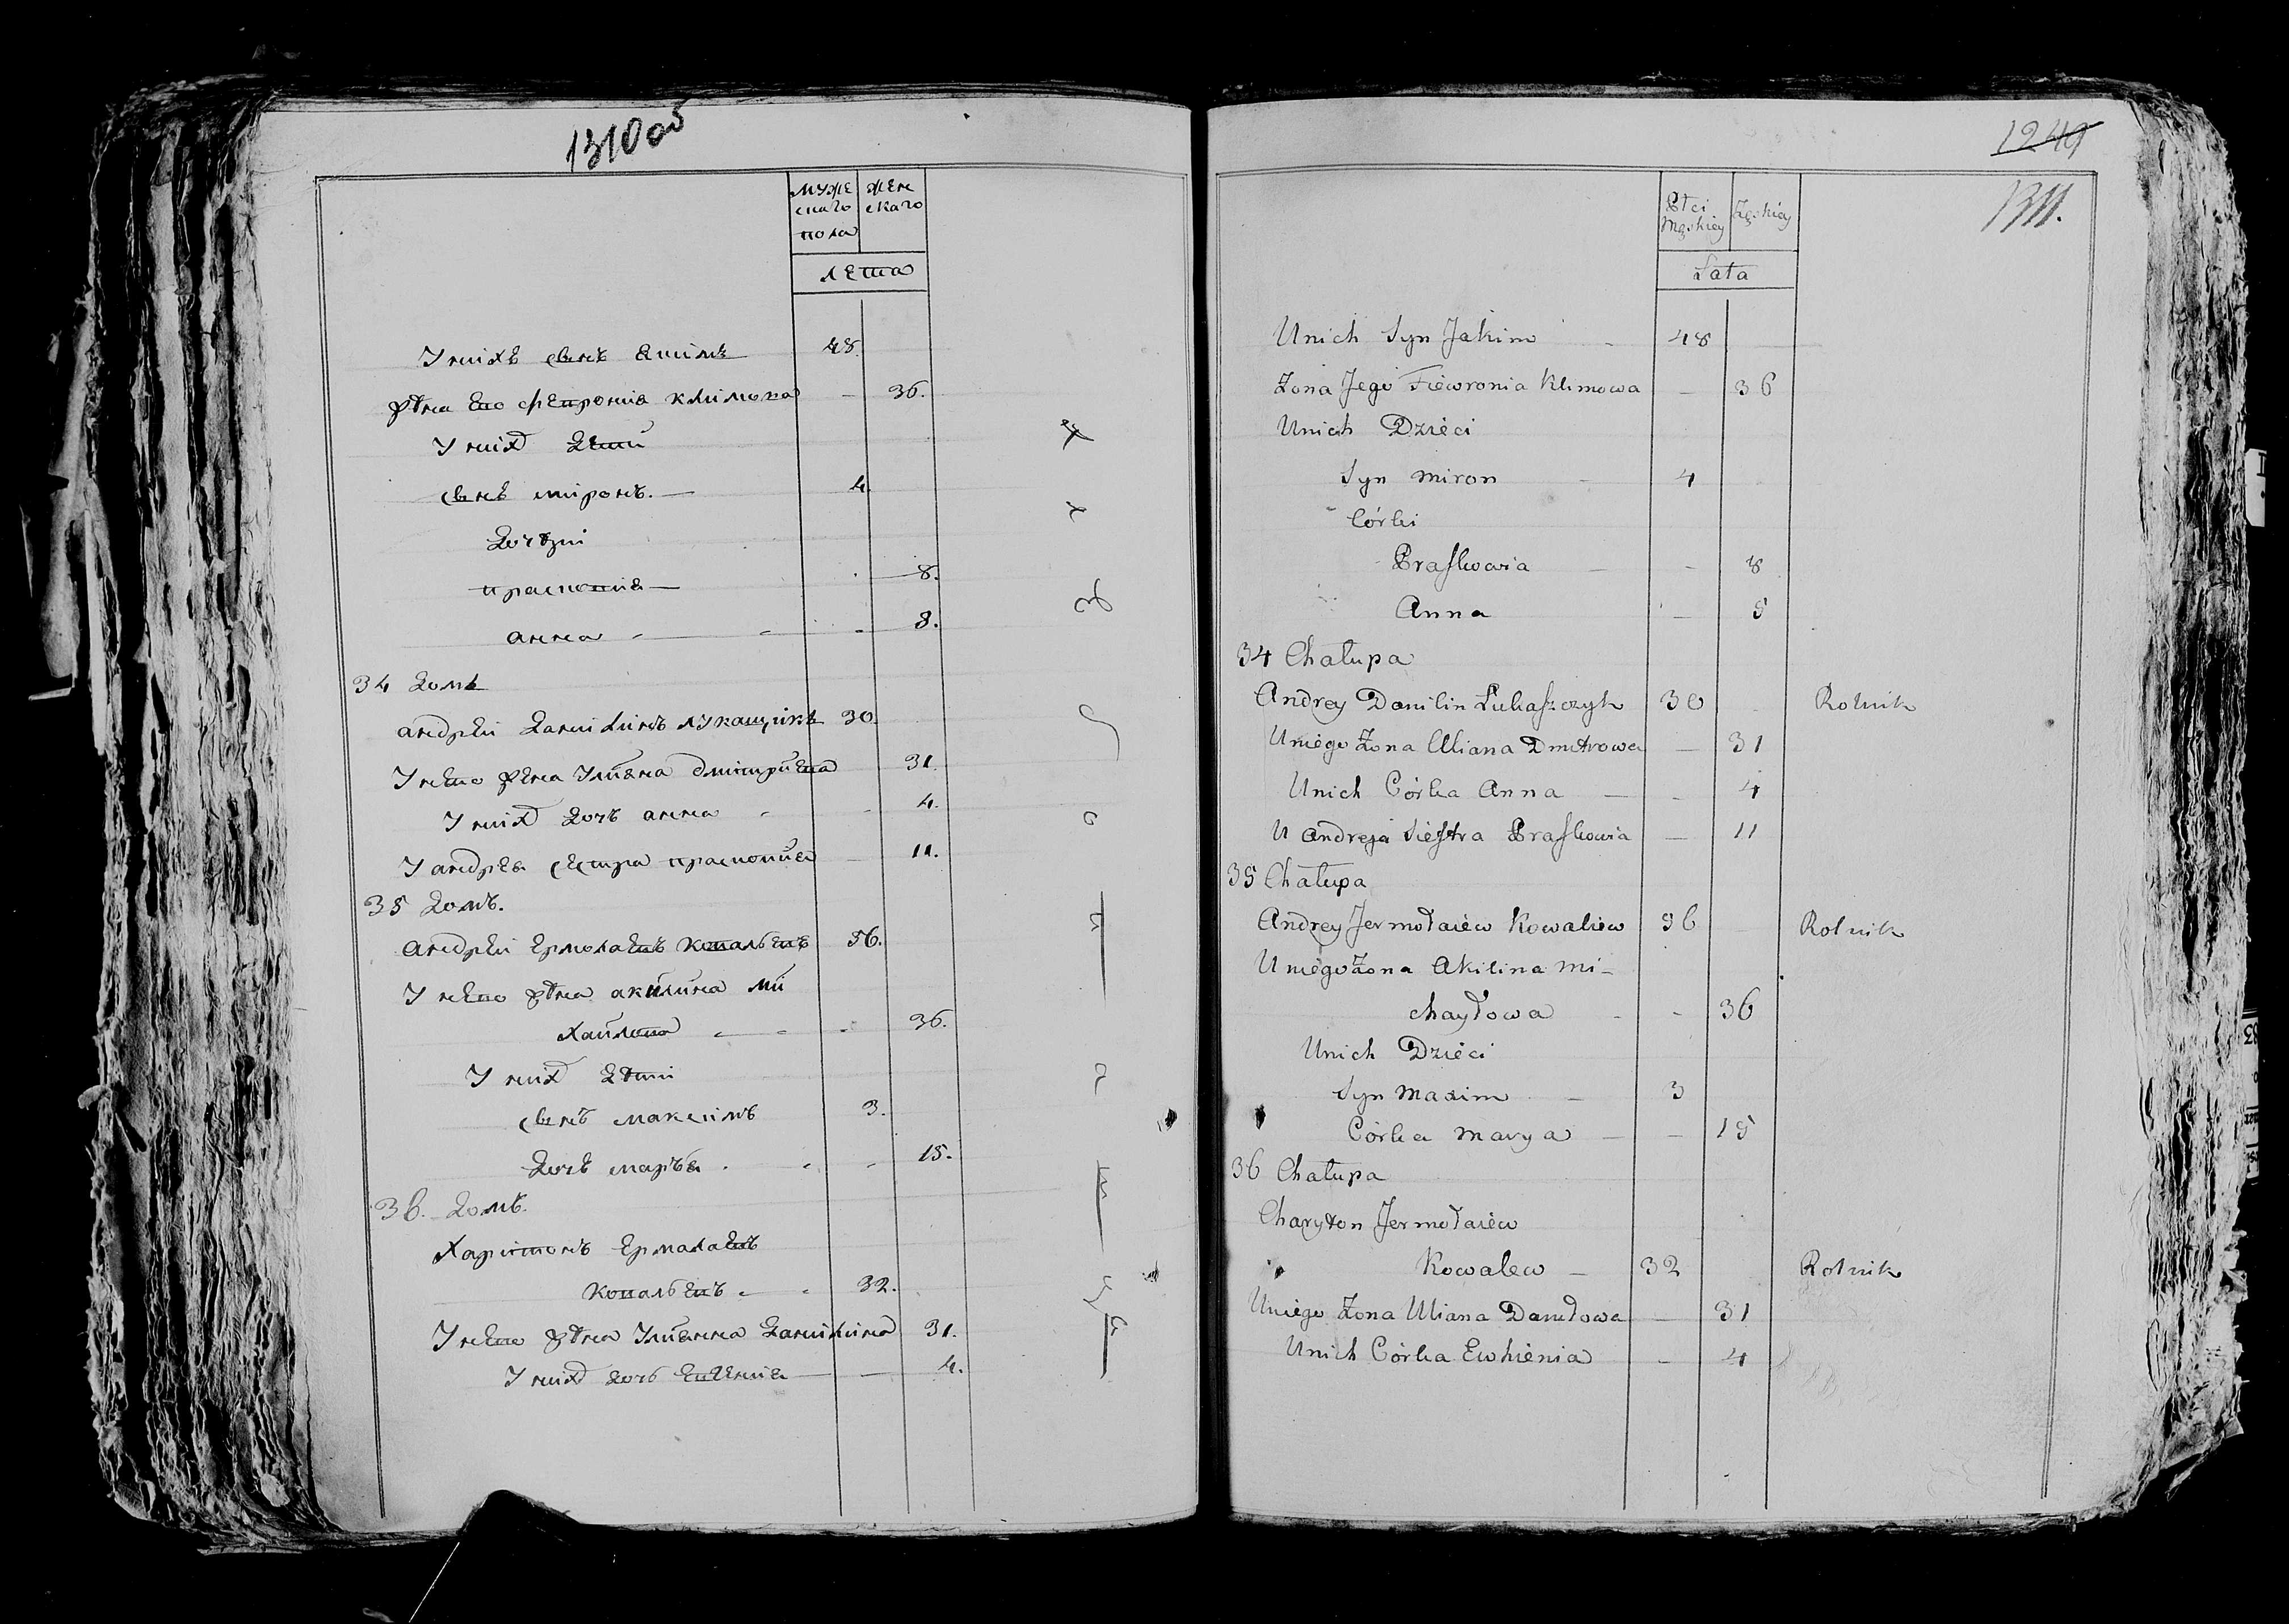 1310 об
муже
скаго
пола
жен
скаго
лета
У нихъ сынъ Якимъ 48.
жѣна его Феврония Климова — 36.
У них дети
сынъ Миронъ. — 4.
дочѣри
Прасковия — 8.
Анна - — - 8.
34 домъ
Андрей Данилинъ Лукащикъ 30.
У него жена Улияна Дмитриева 31.
У них дочь Анна - - 4.
У Андрея сестра Прасковия — 11.
35 домъ.
Андрей Ермолаевъ Ковальевъ 56.
У него жѣна Акилина Ми
хайлова - - - 36.
У них дѣти
сынъ Максимъ 3.
дочь Марья . - - 15.
36. домъ.
Харитонъ Ермалаевъ
Ковальевъ - - 32.
У него жѣна Улиянна Данилина 31.
У них дочь Евгения — — 4.
1249
1311.
Płci
Męskiey
Zęskiey
Lata
Unich Syn Jakim - 48
Zona Jego Fiewronia Klimowa — 36
Unich Dzieci
Syn Miron - 4
Córki
Praskowia — - 8
Anna — 5
34 Chałupa
Andrey Danilin Lukaszczyk 30 Rolnik
Uniego Zona Uliana Dmitrowa — 31
Unich Córka Anna — - 4
U Andreja Siestra Praskowia — 11
35 Chałupa
Andrey Jermołaiew Kowaliew 56 Rolnik
Uniego Zona Akilina Mi-
chayłowa - - 36
Unich Dzieci
Syn Maxim — 3
Córka Marya — — 15
36 Chałupa
Charyton Jermołaiew
Kowalew — 32 Rolnik
Uniego Zona Uliana Daniłowa — 31
Unich Córka Ewhienia — 4